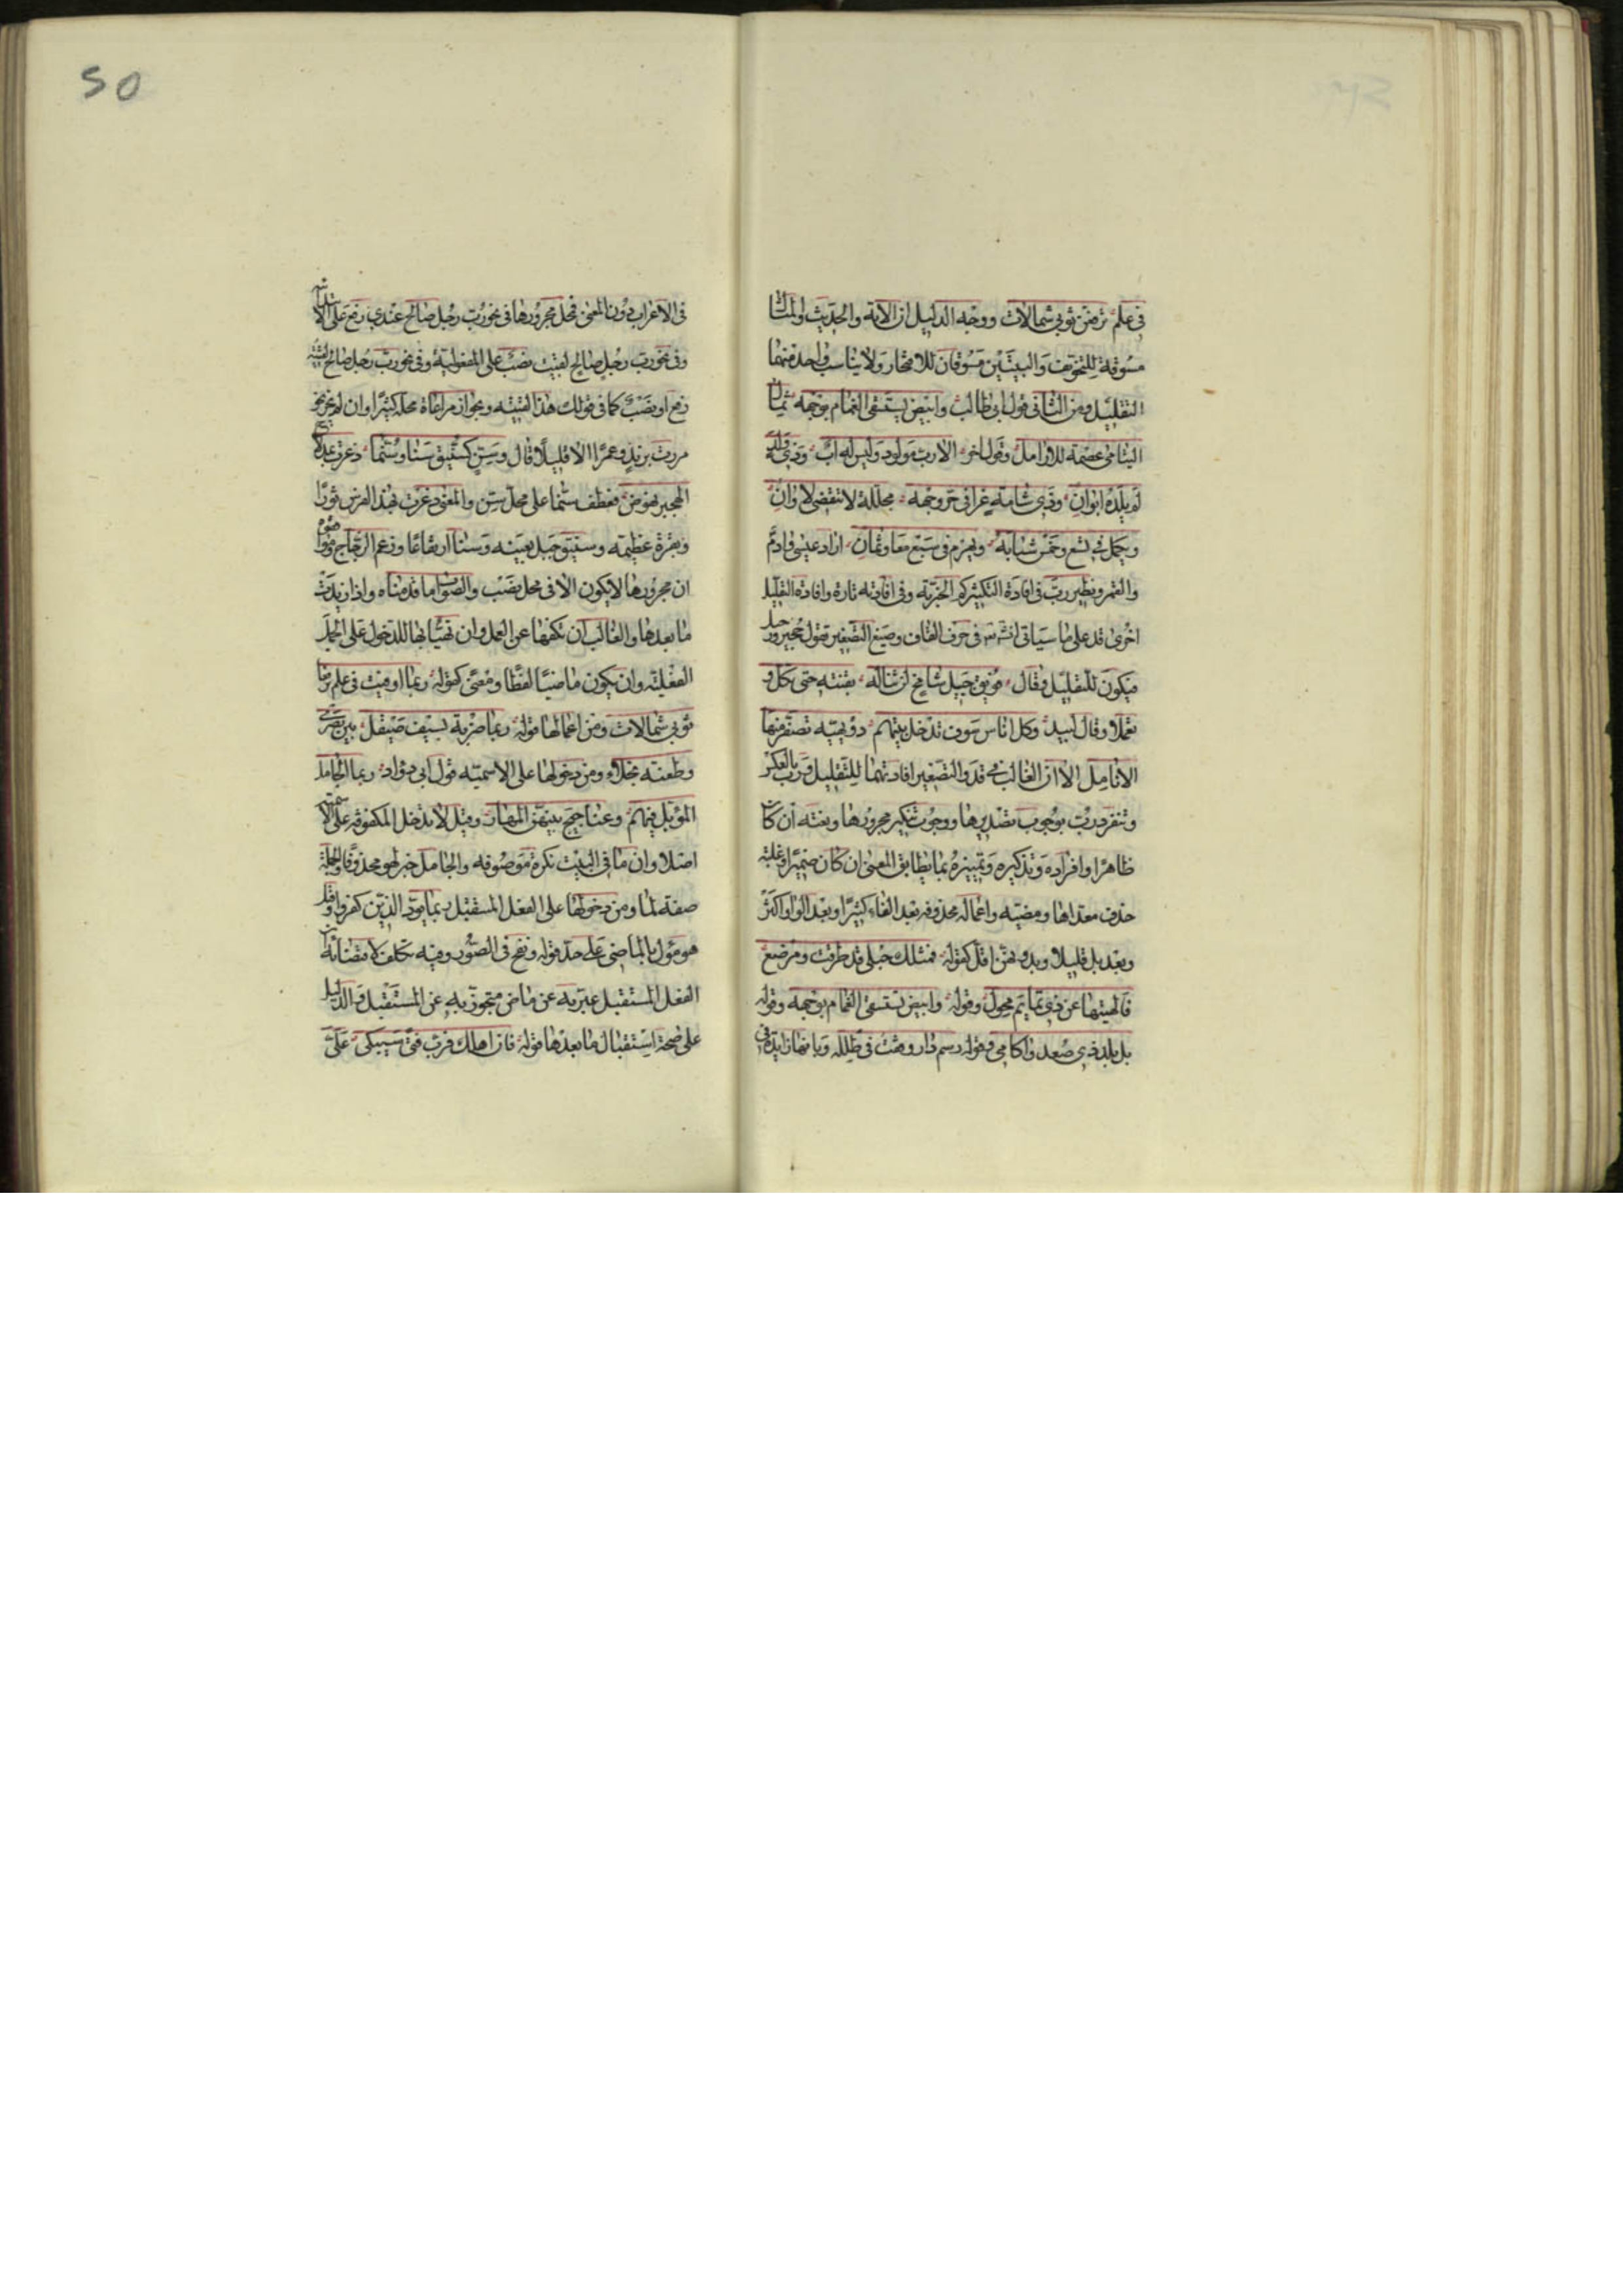 في علم ترفعن ثوبي شمالات ووجه الدليل ان الآية والحديث والمثال
مسوقة للتخويف والبيتين مسوقان للافتخار ولا يناسب واحد منهما
التقليل ومن الثاني قول ابي طالب وابيض يستسقى الغمام بوجهه ثمال
اليتامى عصمة للارامل وقول اخر الا رب مولود وليس له اب وذي ولد
لم يلده ابوان وذي شامة غرا في حر وجهه مجللة لا تنقضي لاوان
ويكمل في تسع وخمس شبابه ويهرم في سبع معا وثمان اراد عيسى وادم
والقمر ونظير رب في افادة التكثير كم الخبرية وفي افادته تارة وافادة التقليل
اخرى قد على ما سياتي ان شاء الله في حرف القاف وصيغ التصغير تقول حجير ورجيل
فيكون للتقليل وقال فويق جبيل شامخ لن تناله بقنته حتى تكل و
تعملا وقال لبيد وكل اناس سوف تدخل بينهم دويهية تصفر منها
الانامل الا ان الغالب في قد والتصغير افادتهما للتقليل ورب بالعكس
وتنفرد رب بوجوب تصديرها ووجوب تنكير مجرورها ونعته ان كان
ظاهرا وافراده وتذكيره وتمييزه بما يطابق المعنى ان كان ضميرا وغلبة
حذف معداها ومضيه واعمالها محذوفة بعد الفاء كثيرا وبعد الواو اكثر
وبعد بل قليلا وبدونهن اقل كقوله فمثلك حبلى قد طرقت ومرضع
فالهيتها عن ذي تمايم محول وقوله وابيض يستسقى الغمام بوجهه وقوله
بل بلد ذي صعد واكام وقوله رسم دار وقفت في طلله وبانها زايدة في
50
في الاعراب دون المعنى فمحل مجرورها في نحو رب رجل صالح عندي رفع على الابتدائية
وفي نحو رب رجل صالح لقيت نصب على المفعولية وفي نحو رب رجل صالح لقيته
رفع او نصب كما في قولك هذا لقيته ويجوز مراعاة محله كثيرا وان لم يجز نحو
مررت بزيد وعمرا الا قليلا قال وسن كسنيق سناء وسنما ذعرت بمدلاج
الهجير نهوض فعطف سنما على محل سن والمعنى ذعرت بهذا الفرس ثورا
وبقرة عظيمة وسنيق جبل بعينه وسناء ارتفاعا وزعم الزجاج وموافقوه
ان مجرورها لا يكون الا في محل نصب والصواب ما قدمناه واذا زيدت
ما بعدها والغالب ان تكفها عن العمل وان تهيئها للدخول على الجمل
الفعلية وان يكون ماضيا لفظا ومعنى كقوله ربما اوفيت في علم ترفعن
ثوبي شمالات ومن اعمالها قوله ربما ضربة بسيف صيقل بين بصرى
وطعنة نجلاء ومن دخولها على الاسمية قول ابي دؤاد ربما الجامل
المؤبل فيهم وعناجيج بينهن المهار وقيل لا تدخل المكفوفة على الاسمية
اصلا وان ما في البيت نكرة موصوفة والجامل خبر لهو محذوفا والجملة
صفة لما ومن دخولها على الفعل المستقبل ربما يود الذين كفروا وقيل
هو مؤول بالماضي على حد قوله ونفخ في الصور وفيه تكلف لاقتضائه ان
الفعل المستقبل عبر به عن ماض متجوز به عن المستقبل والدليل
على صحة استقبال ما بعدها قوله فان اهلك فرب فتى سيبكي علي